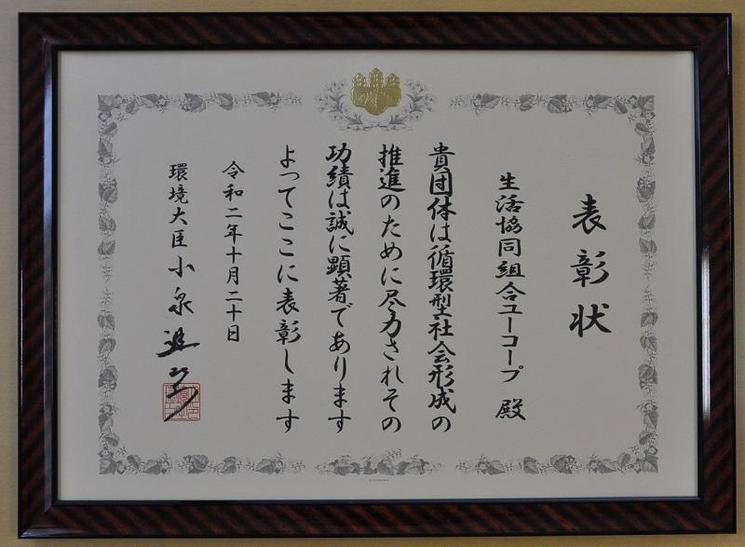 表彰状
生活協同組合ユーコープ 殿
貴団体は循環型社会形成の
推進のために尽力されその
功績は誠に顕著であります
よってここに表彰します
令和二年十月二十日
環境大臣 小泉進